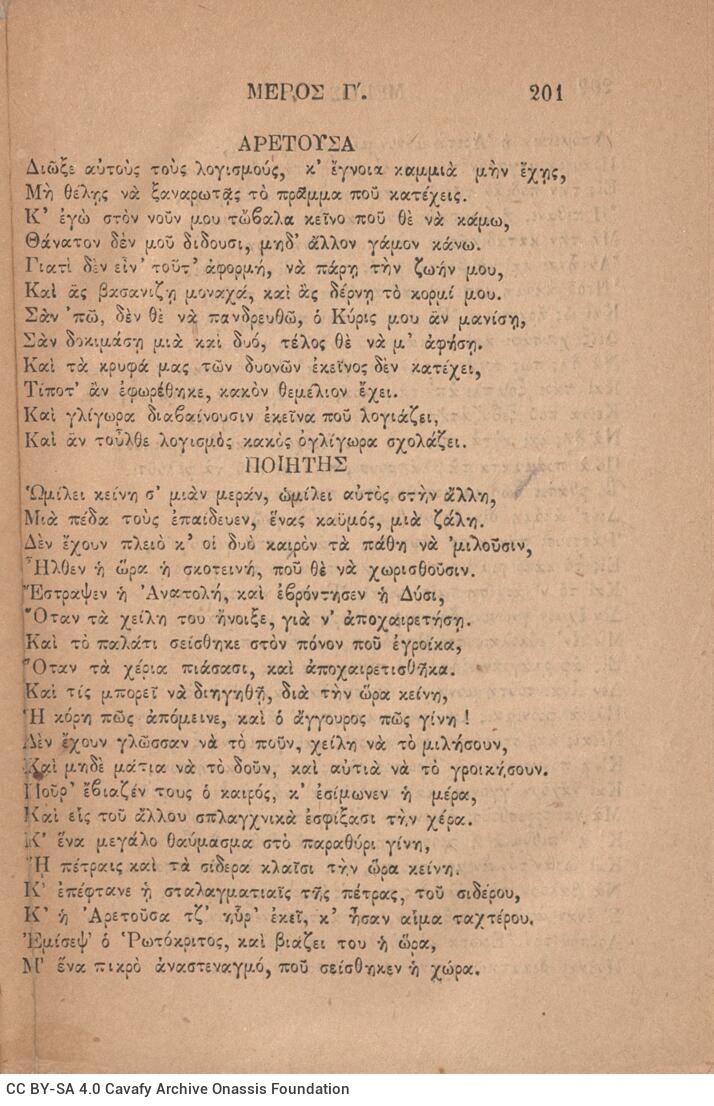 ΜΕΡΟΣ Γ΄. 201
ΑΡΕΤΟΥΣΑ
Διῶξε αὐτοὺς τοὺς λογισμούς, κ' ἔγνοια καμμιὰ μὴν ἔχῃς,
Μὴ θέλῃς νὰ ξαναρωτᾷς τὸ πρᾶμμα ποῦ κατέχεις.
Κ' ἐγὼ στὸν νοῦν μου τὤβαλα κεῖνο ποῦ θὲ νὰ κάμω,
Θάνατον δὲν μοῦ δίδουσι, μηδ' ἄλλον γάμον κάνω.
Γιατὶ δὲν εἶν' τοῦτ' ἀφορμή, νὰ πάρῃ τὴν ζωήν μου,
Καὶ ἂς βασανίζῃ μοναχά, καὶ ἂς δέρνῃ τὸ κορμί μου.
Σὰν 'πῶ, δὲν θὲ νὰ πανδρευθῶ, ὁ Κύρις μου ἂν μανίσῃ,
Σὰν δοκιμάσῃ μιὰ καὶ δυό, τέλος θὲ νὰ μ' ἀφήσῃ.
Καὶ τὰ κρυφά μας τῶν δυονῶν ἐκεῖνος δὲν κατέχει,
Τίποτ' ἂν ἐφωρέθηκε, κακὸν θεμέλιον ἔχει.
Καὶ γλίγωρα διαβαίνουσιν ἐκεῖνα ποῦ λογιάζει,
Καὶ ἂν τοὖλθε λογισμὸς κακὸς ὀγλίγωρα σχολάζει.
ΠΟΙΗΤΗΣ
Ὡμίλει κείνη σ' μιὰν μεράν, ὡμίλει αὐτὸς στὴν ἄλλη,
Μιὰ πέδα τοὺς ἐπαίδευεν, ἕνας καϋμός, μιὰ ζάλη.
Δὲν ἔχουν πλειὸ κ' οἱ δυὸ καιρὸν τὰ πάθη νὰ 'μιλοῦσιν,
Ἦλθεν ἡ ὥρα ἡ σκοτεινή, ποῦ θὲ νὰ χωρισθοῦσιν.
Ἔστραψεν ἡ Ἀνατολή, καὶ ἐβρόντησεν ἡ Δύσι,
Ὅταν τὰ χείλη του ἤνοιξε, γιὰ ν' ἀποχαιρετήσῃ.
Καὶ τὸ παλάτι σείσθηκε στὸν πόνον ποῦ ἐγροίκα,
Ὅταν τὰ χέρια πιάσασι, καὶ ἀποχαιρετισθῆκα.
Καὶ τίς μπορεῖ νὰ διηγηθῇ, διὰ τὴν ὥρα κείνη,
Ἡ κόρη πῶς ἀπόμεινε, καὶ ὁ ἄγγουρος πῶς γίνη !
Δὲν ἔχουν γλῶσσαν νὰ τὸ ποῦν, χείλη νὰ τὸ μιλήσουν,
Καὶ μηδὲ μάτια νὰ τὸ δοῦν, καὶ αὐτιὰ νὰ τὸ γροικήσουν.
Ποῦρ' ἔβιαζέν τους ὁ καιρός, κ' ἐσίμωνεν ἡ μέρα,
Καὶ εἰς τοῦ ἄλλου σπλαγχνικὰ ἐσφίξασι τὴν χέρα.
Κ' ἕνα μεγάλο θαύμασμα στὸ παραθύρι γίνη,
Ἡ πέτραις καὶ τὰ σίδερα κλαῖσι τὴν ὥρα κείνη.
Κ' ἐπέφτανε ἡ σταλαγματιαῖς τῆς πέτρας, τοῦ σιδέρου,
Κ' ἡ Ἀρετοῦσα τζ' ηὗρ' ἐκεῖ, κ' ἦσαν αἷμα ταχτέρου.
Ἐμίσεψ' ὁ Ῥωτόκριτος, καὶ βιάζει του ἡ ὥρα,
Μ' ἕνα πικρὸ ἀναστεναγμό, ποῦ σείσθηκεν ἡ χώρα.
CC BY-SA 4.0 Cavafy Archive Onassis Foundation